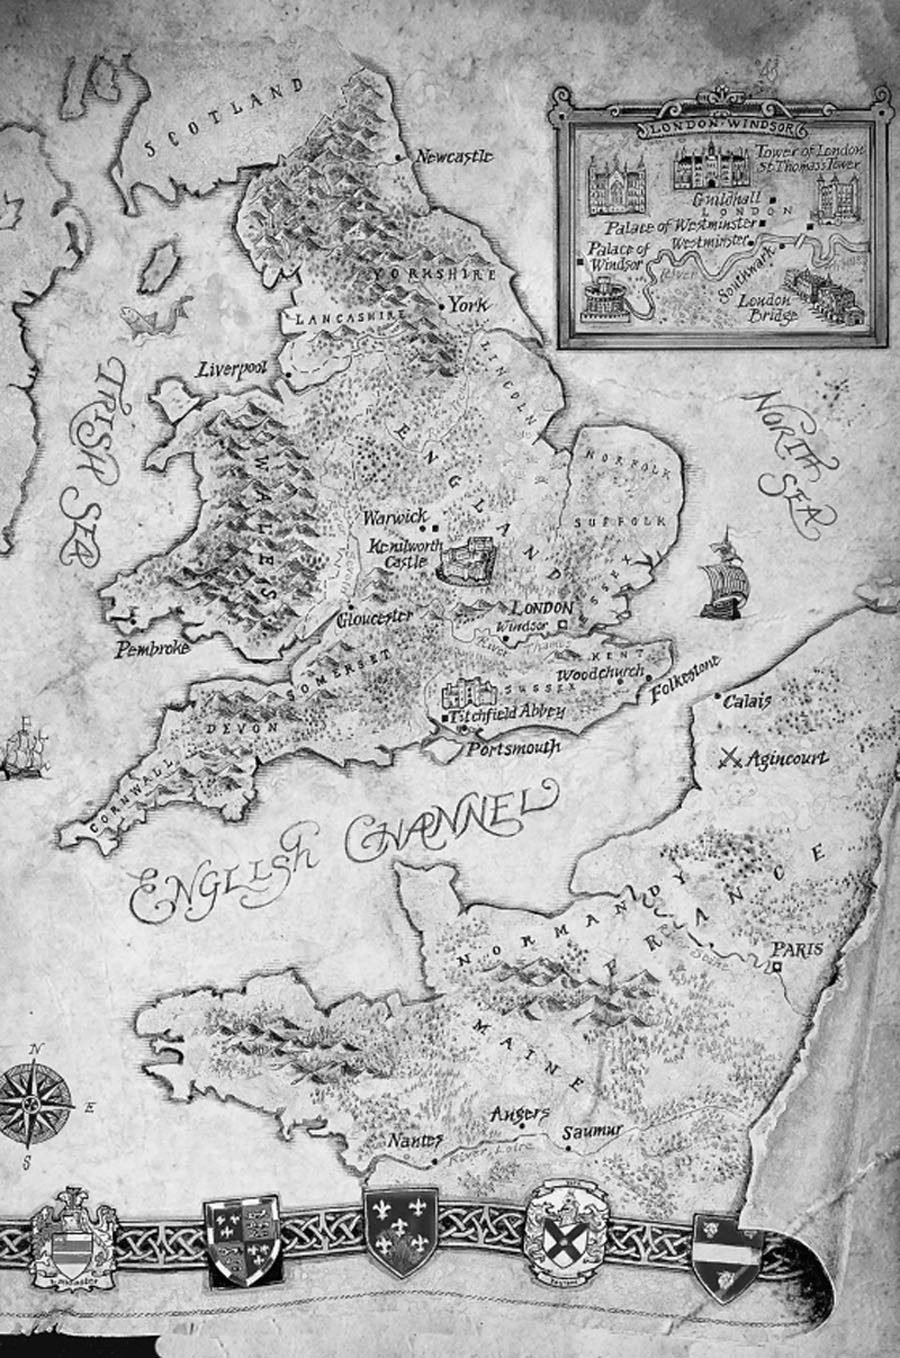 SCOTLAND
Newcastle
LONDON·WINDSOR
Tower of London
St Thomas's Tower
Guildhall
LONDON
Palace of Westminster
Westminster
Palace of
Windsor
River
Southwark
London
Bridge
YORKSHIRE
York
LANCASHIRE
Liverpool
LINCOLN
IRISH SEA
NORTH
SEA
ENGLAND
NORFOLK
SUFFOLK
WALES
Warwick
Kenilworth
Castle
ESSEX
LONDON
Windsor
River Thames
Gloucester
Pembroke
KENT
Woodchurch
Folkestone
SOMERSET
SUSSEX
Titchfield Abbey
Portsmouth
DEVON
CORNWALL
Calais
Agincourt
ENGLISH CHANNEL
NORMANDY
FRANCE
Seine
PARIS
MAINE
Angers
Saumur
Nantes
River Loire
N
E
S
Lancaster